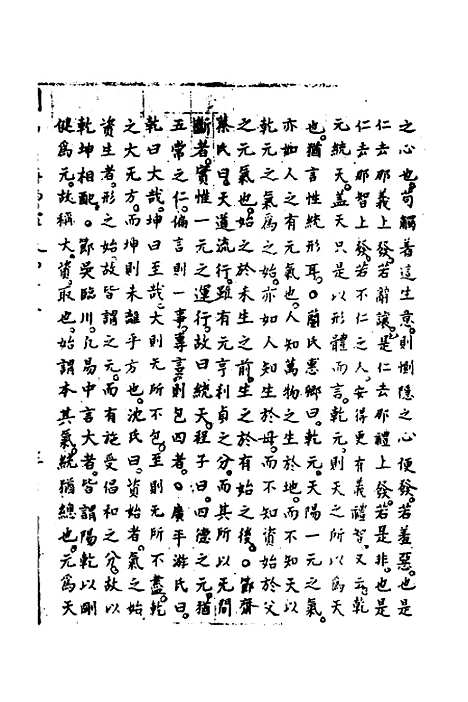 之心也苟觸着這生意則惻隱之心便發若羞惡也是
仁去那義上發若辭讓是仁去那禮上發若是非也是
仁去那智上發若不仁之人安得更有義禮智又云乾
元統天蓋天只是以形體而言乾元則天之所以為天
也猶言性統形耳○蘭氏惠卿曰乾元天陽一元之氣
亦如人之有元氣也人知萬物之生於地而不知天以
乾元之氣為之始亦如人知生於母而不知資始於父
之元氣也始之於未生之前生之於有始之後○節齋
蔡氏曰天道流行雖有元亨利貞之分而其所以無間
斷者實性一元之運行故曰統天程子曰四德之元猶
五常之仁偏言則一事專言則包四者○廣平游氏曰
乾曰大哉坤曰至哉大則無所不包至則無所不盡乾
之大無方而坤則未離乎方也沈氏曰資始者氣之始
資生者形之始故皆謂之元而有施受倡和之分故以
乾坤相配節吳臨川凡易中言大者皆謂陽乾以剛
健為元故稱大資取也始謂本其氣統猶總也元為天